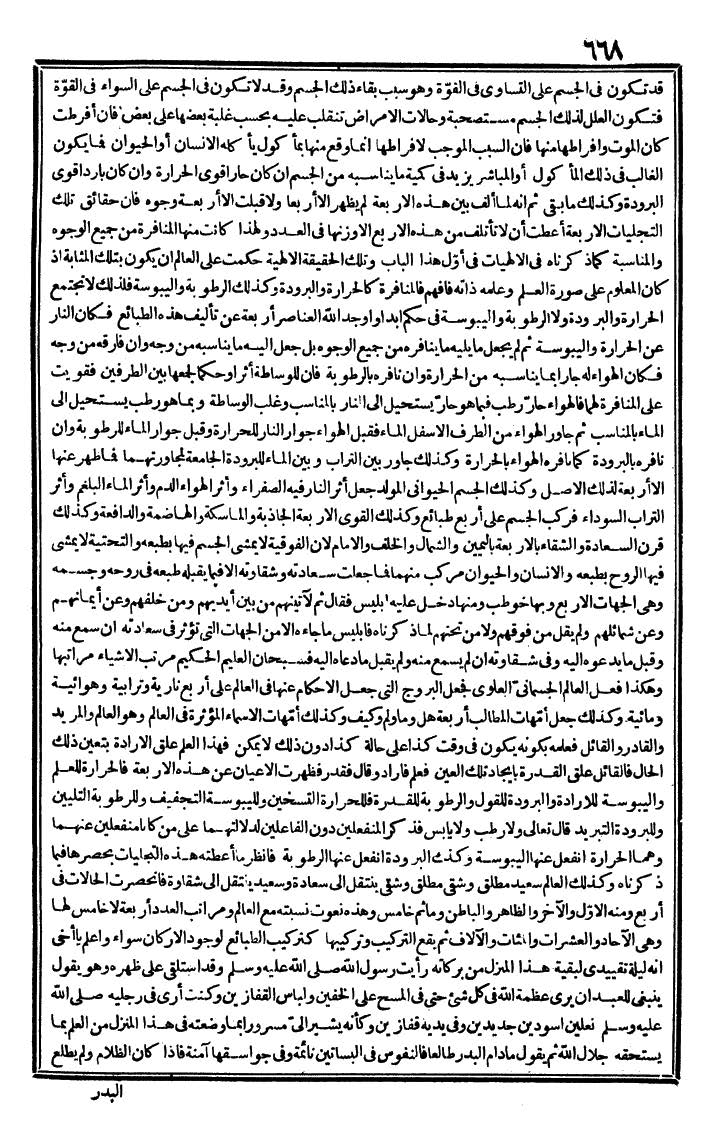 ٦٦٨
قد تكون فى الجسم على التساوى فى القوّة وهو سبب بقاء ذلك الجسم وقد لا تكون فى الجسم على السواء فى القوّة
فتكون العلل لذلك الجسم مستصحبة وحالات الامراض تنقلب عليه بحسب غلبة بعضها على بعض فان أفرطت
كان الموت وافراطها منها فان السبب الموجب لافراطها انما وقع منها بمأكول يأكله الانسان أو الحيوان فما يكون
الغالب فى ذلك المأكول أو المباشر يزيد فى كمية ما يناسبه من الجسم ان كان حارا قوى الحرارة وان كان باردا قوى
البرودة وكذلك ما بقى ثم انه لما ألف بين هذه الاربعة لم يظهر الا أربعا ولا قبلت الا أربعة وجوه فان حقائق تلك
التجليات الاربعة أعطت أن لا تأتلف من هذه الاربع الا وزنها فى العدد ولهذا كانت منها المنافرة من جميع الوجوه
والمناسبة كما ذكرناه فى الالهيات فى أوّل هذا الباب وتلك الحقيقة الالهية حكمت على العالم ان يكون بتلك المثابة اذ
كان المعلوم على صورة العلم وعلمه ذاته فافهم فالمنافرة كالحرارة والبرودة وكذلك الرطوبة واليبوسة فلذلك لا تجتمع
الحرارة والبرودة ولا الرطوبة واليبوسة فى حكم ابدا وأوجد الله العناصر أربعة عن تأليف هذه الطبائع فكان النار
عن الحرارة واليبوسة ثم لم يجعل ما يليه ما ينافره من جميع الوجوه بل جعل اليه ما يناسبه من وجه وان فارقه من وجه
فكان الهواء له جارا بما يناسبه من الحرارة وان نافره بالرطوبة فان للوساطة أثرا وحكما لجمعها بين الطرفين فقويت
على المنافرة لهما فالهواء حارّ رطب فيما هو حارّ يستحيل الى النار بالمناسب وغلب الوساطة وبما هو رطب يستحيل الى
الماء بالمناسب ثم جاور الهواء من الطرف الاسفل الماء فقبل الهواء جوار النار للحرارة وقبل جوار الماء للرطوبة وان
نافره بالبرودة كما نافره الهواء بالحرارة وكذلك جاور بين التراب وبين الماء للبرودة الجامعة لمجاورتهما فما ظهر عنها
الا أربعة لذلك الاصل وكذلك الجسم الحيوانى المولد جعل أثر النار فيه الصفراء وأثر الهواء الدم وأثر الماء البلغم وأثر
التراب السوداء فركب الجسم على أربع طبائع وكذلك القوى الاربعة الجاذبة والماسكة والهاضمة والدافعة وكذلك
قرن السعادة والشقاء بالاربعة باليمين والشمال والخلف والامام لان الفوقية لا يمشى الجسم فيها بطبعه والتحتية لا يمشى
فيها الروح بطبعه والانسان والحيوان مركب منهما فما جعلت سعادته وشقاوته الا فيما يقبله طبعه فى روحه وجسمه
وهى الجهات الاربع وبها خوطب ومنها دخل عليه ابليس فقال ثم لآتينهم من بين أيديهم ومن خلفهم وعن أيمانهم
وعن شمائلهم ولم يقل من فوقهم ولا من تحتهم لما ذكرناه فابليس ما جاءه الا من الجهات التى تؤثر فى سعادته ان سمع منه
وقبل ما يدعوه اليه وفى شقاوته ان لم يسمع منه ولم يقبل ما دعاه اليه فسبحان العليم الحكيم مرتب الاشياء مراتبها
وهكذا فعل العالم الجسمانىّ العلوى فجعل البروج التى جعل الاحكام عنها فى العالم على أربع نارية وترابية وهوائية
ومائية وكذلك جعل أمّهات المطالب أربعة هل وما ولم وكيف وكذلك أمّهات الاسماء المؤثرة فى العالم وهو العالم والمريد
والقادر والقائل فعلمه بكونه يكون فى وقت كذا على حالة كذا دون ذلك لا يمكن فهذا العلم علق الارادة بتعين ذلك
الحال فالقائل علق القدرة بايجاد تلك العين فعلم فأراد وقال فقدر فظهرت الاعيان عن هذه الاربعة فالحرارة للعلم
واليبوسة للارادة والبرودة للقول والرطوبة للقدرة فللحرارة التسخين ولليبوسة التجفيف وللرطوبة التليين
وللبرودة التبريد قال تعالى ولا رطب ولا يابس فذكر المنفعلين دون الفاعلين لدلالتهما على من كانا منفعلين عنهما
وهما الحرارة انفعل عنها اليبوسة وكذلك البرودة انفعل عنها الرطوبة فانظر ما أعطته هذه التجليات بحصرها فيما
ذكرناه وكذلك العالم سعيد مطلق وشقى مطلق وشقى ينتقل الى سعادة وسعيد ينتقل الى شقاوة فانحصرت الحالات فى
أربع ومنه الاوّل والآخر والظاهر والباطن وما ثم خامس وهذه نعوت نسبته مع العالم ومراتب العدد أربعة لا خامس لها
وهى الآحاد والعشرات والمئات والآلاف ثم يقع التركيب وتركيبها كتركيب الطبائع لوجود الاركان سواء واعلم يا أخى
انه ليلة تقييدى لبقية هذا المنزل من بركاته رأيت رسول الله صلى الله عليه وسلم وقد استلقى على ظهره وهو يقول
ينبغى للعبد ان يرى عظمة الله فى كل شئ حتى فى المسح على الخفين ولباس القفازين وكنت أرى فى رجليه صلى الله
عليه وسلم نعلين اسودين جديدين وفى يديه قفازين وكأنه يشير الىّ مسرورا بما وضعته فى هذا المنزل من العلم بما
يستحقه جلال الله ثم يقول مادام البدر طالعا فالنفوس فى البساتين نائمة وفى جواسقها آمنة فاذا كان الظلام ولم يطلع
البدر